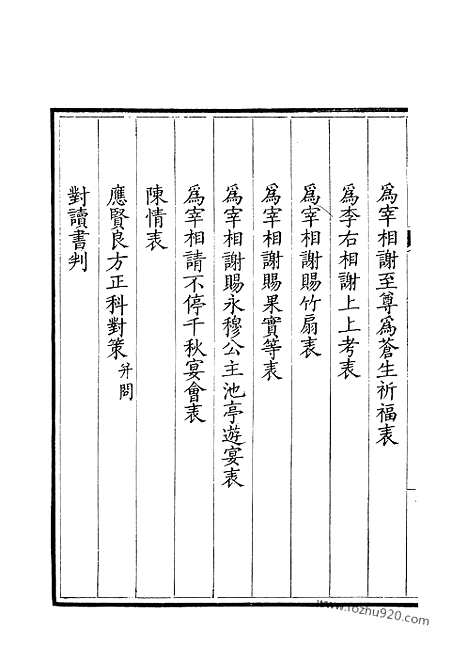 爲宰相謝至尊爲蒼生祈福表
爲李右相謝上上考表
爲宰相謝賜竹扇表
爲宰相謝賜果實等表
爲宰相謝賜永穆公主池亭遊宴表
爲宰相請不停千秋宴會表
陳情表
應賢良方正科對策 并問
對讀書判
www.fozhu920.com